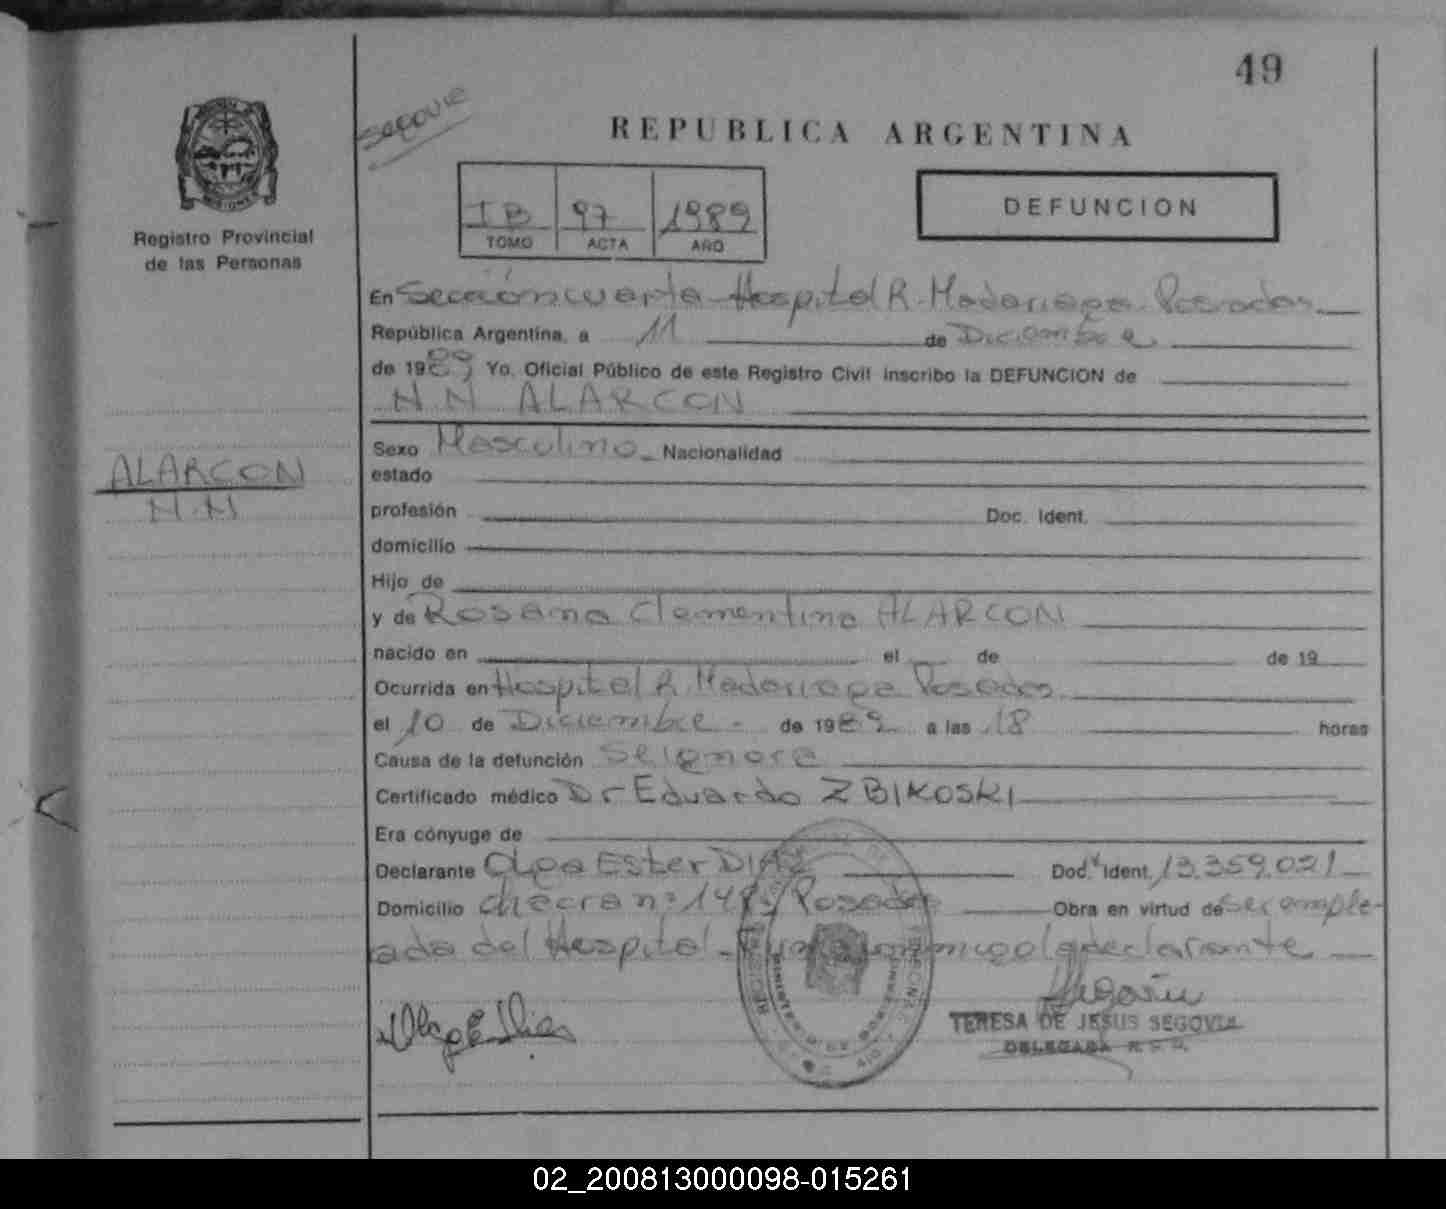 49
Segovia
REPUBLICA ARGENTINA
IB 97 1989
TOMO ACTA AÑO
DEFUNCION
Registro Provincial
de las Personas
En Sección cuarta Hospital R. Madariaga Posadas
República Argentina, a 11 de Diciembre
de 1989 Yo, Oficial Público de este Registro Civil inscribo la DEFUNCION de
N N ALARCON
ALARCON
N.N
Sexo Masculino Nacionalidad
estado
profesión Doc. Ident.
domicilio
Hijo de
y de Rosana Clementina ALARCON
nacido en el de de 19
Ocurrida en Hospital R. Madariaga Posadas
el 10 de Diciembre de 1989 a las 18 horas
Causa de la defunción Se ignora
Certificado médico Dr Eduardo ZBIKOSKI
Era cónyuge de
Declarante Olga Ester DIAZ Doc. Ident. 13.359.021
Domicilio checra nº 148 Posadas Obra en virtud de ser emple-
ada del Hospital declarante
TERESA DE JESUS SEGOVIA
DELEGADA R. P. P.
02_200813000098-015261